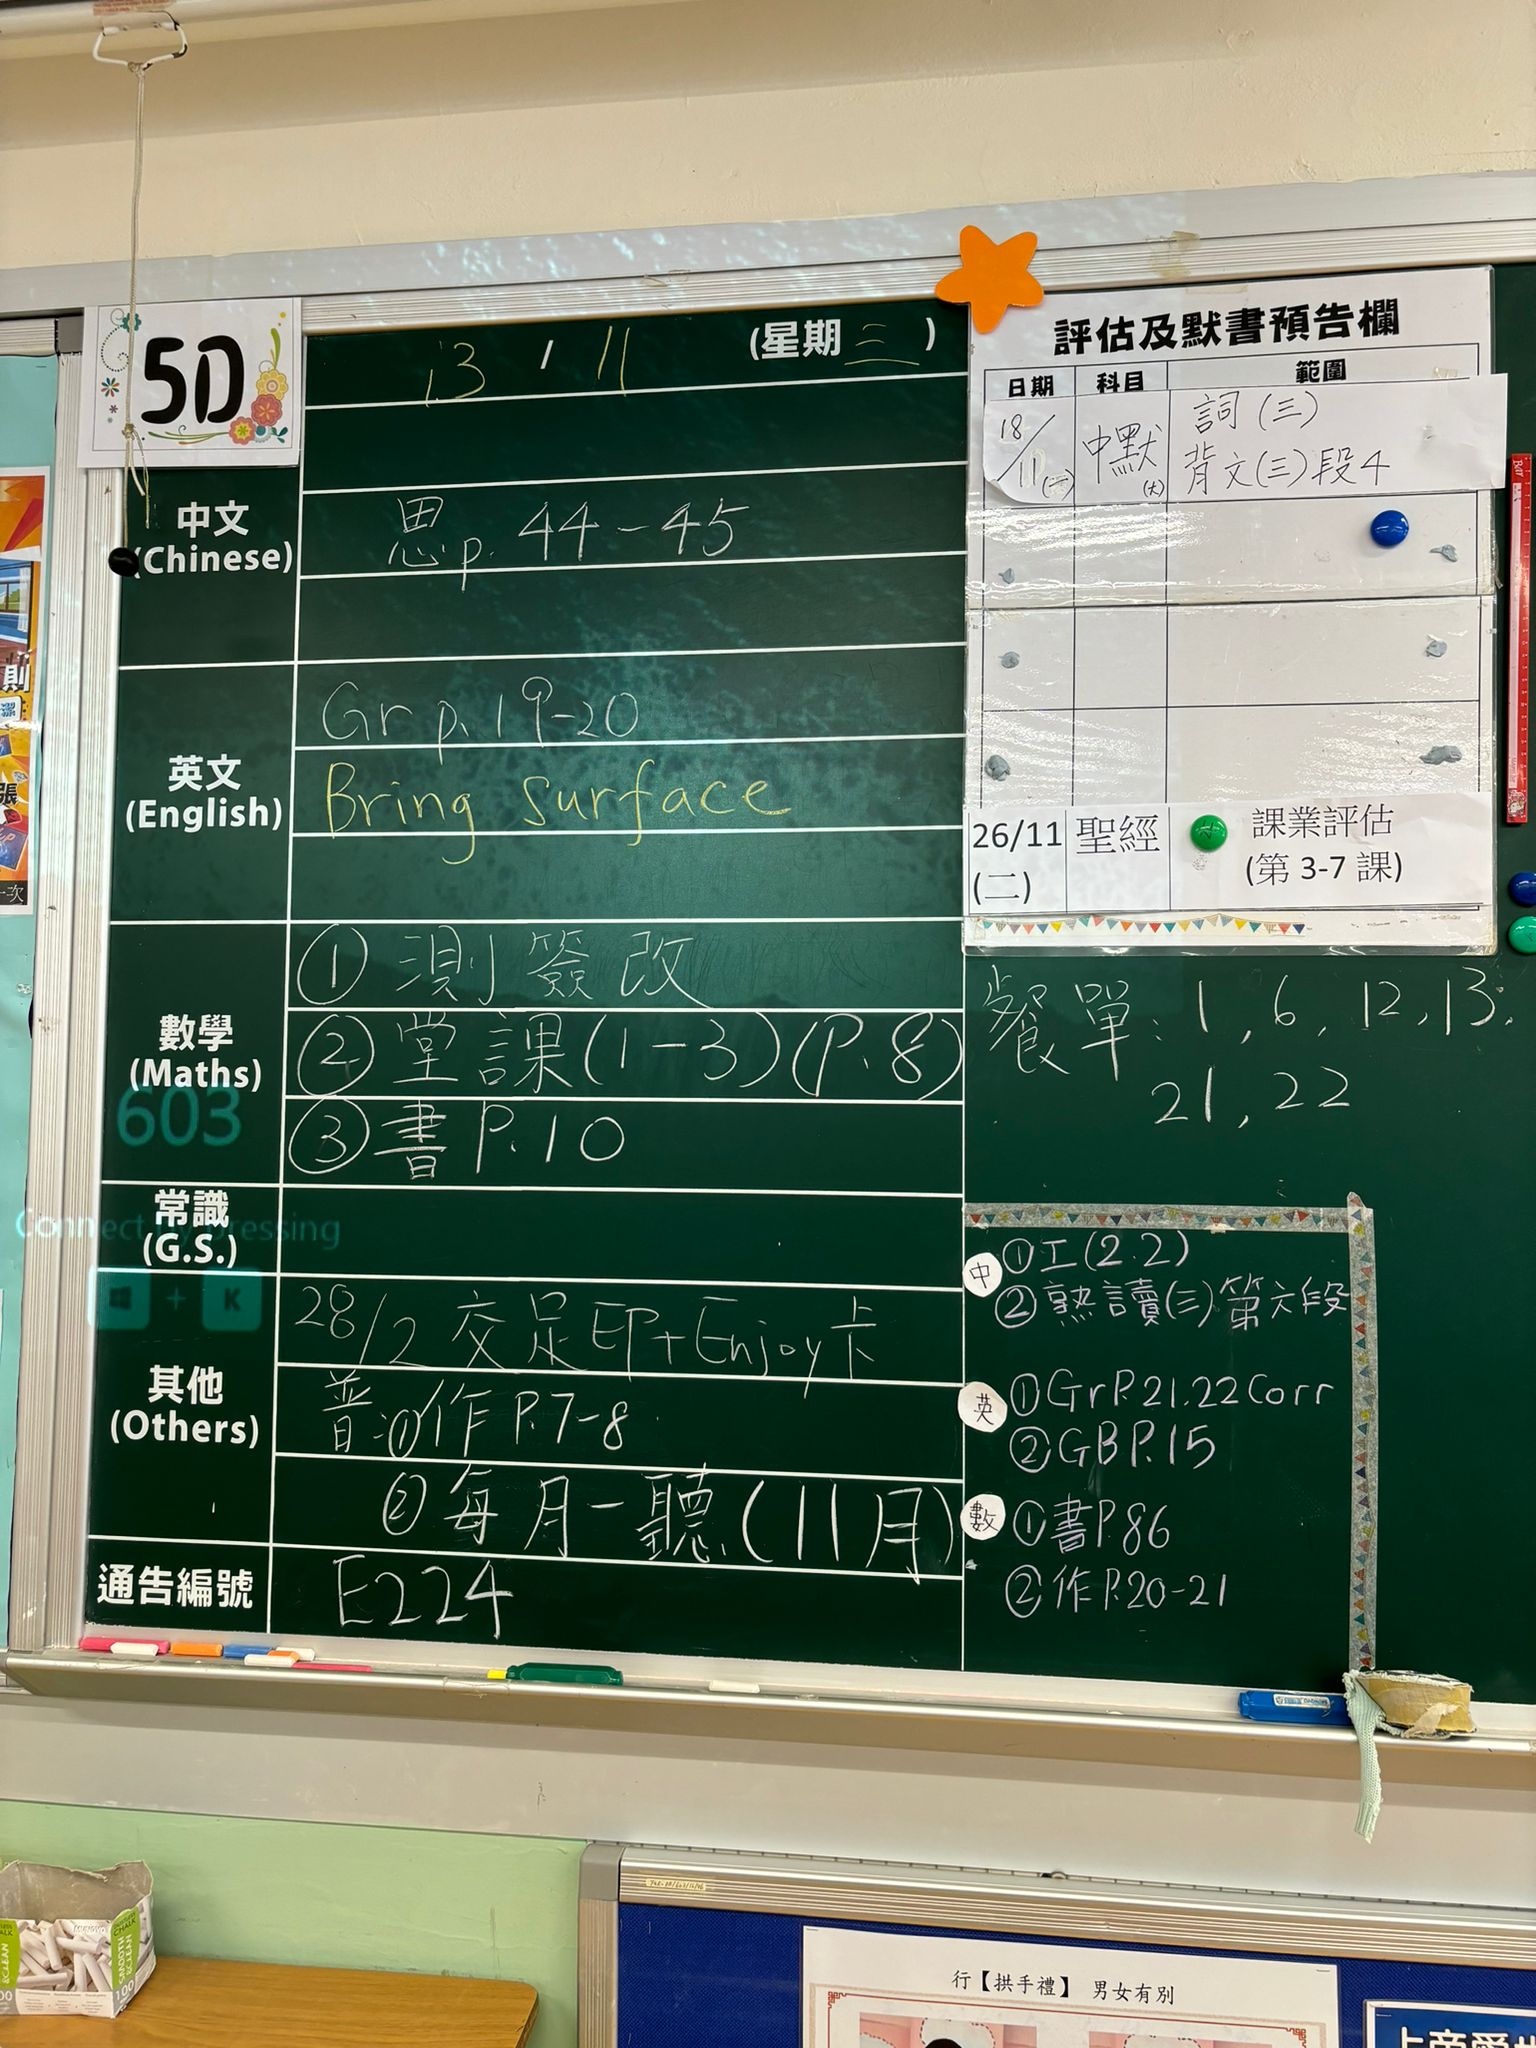 5D
13 / 11 (星期三)
中文
(Chinese)
思p. 44-45
英文
(English)
Gr p.19-20
Bring surface
數學
(Maths)
① 測簽改
② 堂課(1-3)(P.8)
③ 書P.10
603
常識
(G.S.)
Connect by pressing
+ K
其他
(Others)
28/2 交足印+Enjoy卡
普:①作P.7-8
②每月一聽(11月)
通告編號
E224
評估及默書預告欄
日期 科目 範圍
18/11(二) 中默(大) 詞(三)
背文(三)段4
26/11
(二)
聖經
課業評估
(第 3-7 課)
餐單: 1, 6, 12, 13,
21, 22
中 ①工(2.2)
②熟讀(三)第六段
英 ①GrP.21.22Corr
②GBP.15
數 ①書P.86
②作P.20-21
則
張
一次
SMOOTH
&CLEAN
CHALK
100
行【拱手禮】 男女有別
上帝愛世